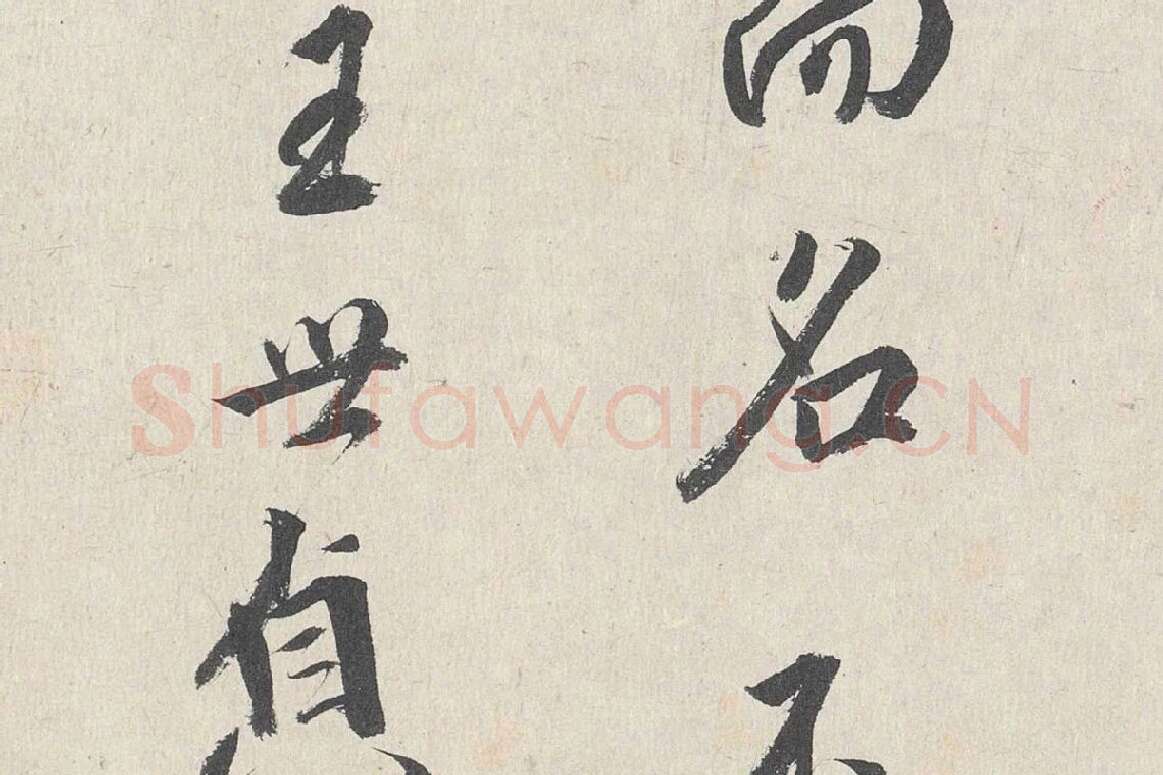 而名不
王世貞
Shufawang.CN